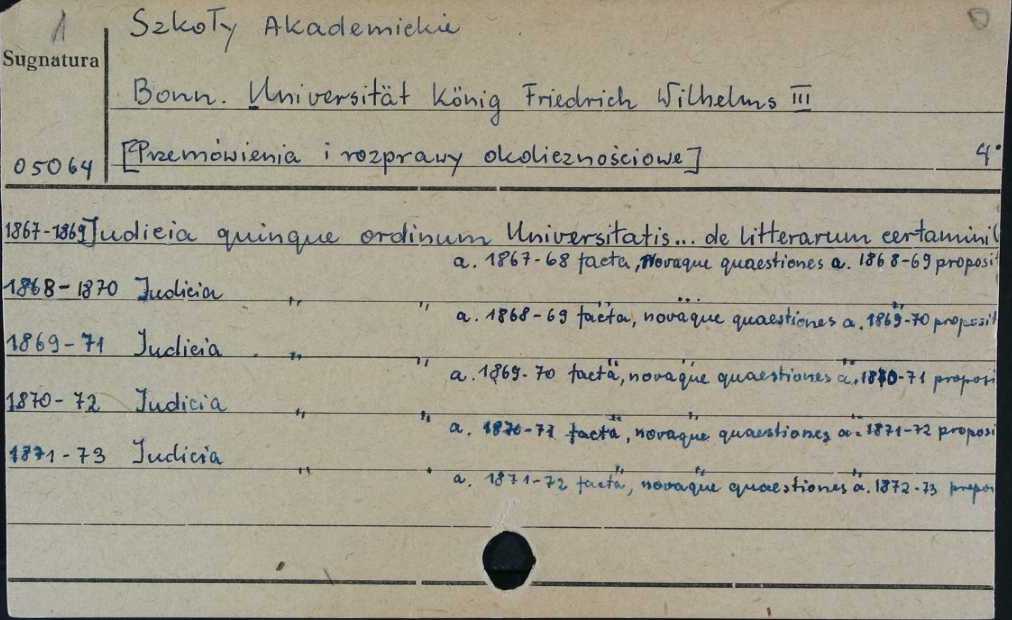 1 Szkoły Akademickie
Sugnatura
Bonn. Universität König Friedrich Wilhelms III
05064 [Przemówienia i rozprawy okolicznościowe] 4°
1867-1869 Judicia quinque ordinum Universitatis... de litterarum certamini
a. 1867-68 facta, novaque quaestiones a. 1868-69 proposit
1868-1870 Iudicia " " " ... "
a. 1868-69 facta, novaque quaestiones a. 1869-70 proposit
1869-71 Iudicia " " " " "
a. 1869-70 facta, novaque quaestiones a. 1870-71 proposi
1870-72 Iudicia " " " " "
a. 1870-71 facta, novaque quaestiones a. 1871-72 proposi
1871-73 Iudicia " " " " "
a. 1871-72 facta, novaque quaestiones a. 1872-73 propos